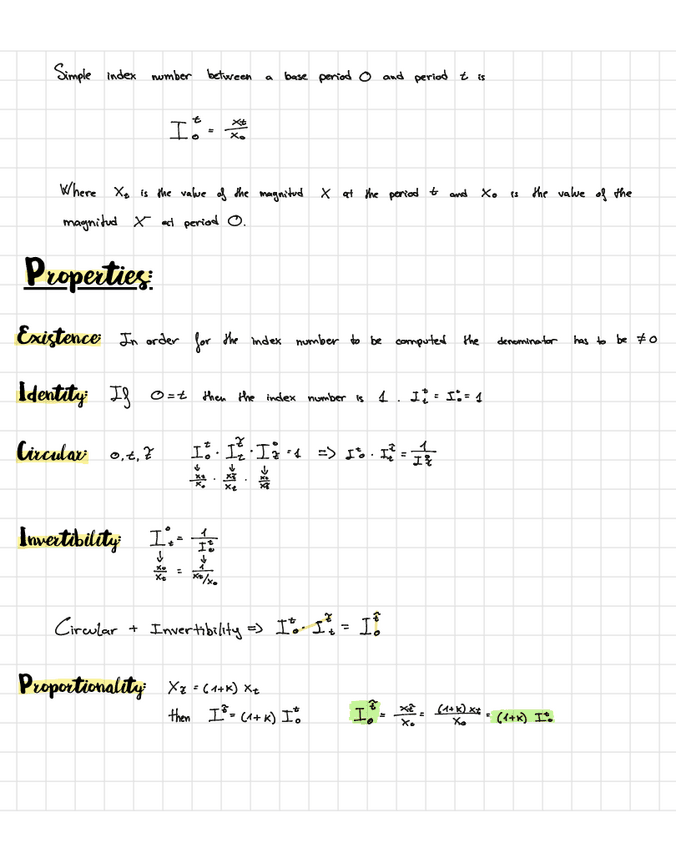 Simple index number between a base period 0 and period t is
I₀ᵗ = xt/x₀
Where Xt is the value of the magnitud X at the period t and X₀ is the value of the
magnitud X at period 0.
Properties:
Existence: In order for the index number to be computed the denominator has to be ≠0
Identity: If 0=t then the index number is 1. Iₜᵗ = I₀⁰ = 1
Circular: 0, t, t̃ I₀ᵗ · Iₜ^t̃ · I_t̃⁰ = 1 => I₀ᵗ · Iₜ^t̃ = 1/I_t̃⁰
↓ ↓ ↓
xt/x₀ · xt̃/xt · x₀/xt̃
Invertibility: Iₜ⁰ = 1/I₀ᵗ
↓ ↓
x₀/xt = 1/(xt/x₀)
Circular + Invertibility => I₀ᵗ · Iₜ^t̃ = I₀^t̃
Proportionality: Xt̃ = (1+K) Xt
then I^t̃ = (1+K) I₀ᵗ I₀^t̃ = xt̃/x₀ = (1+K) xt/x₀ = (1+K) I₀ᵗ